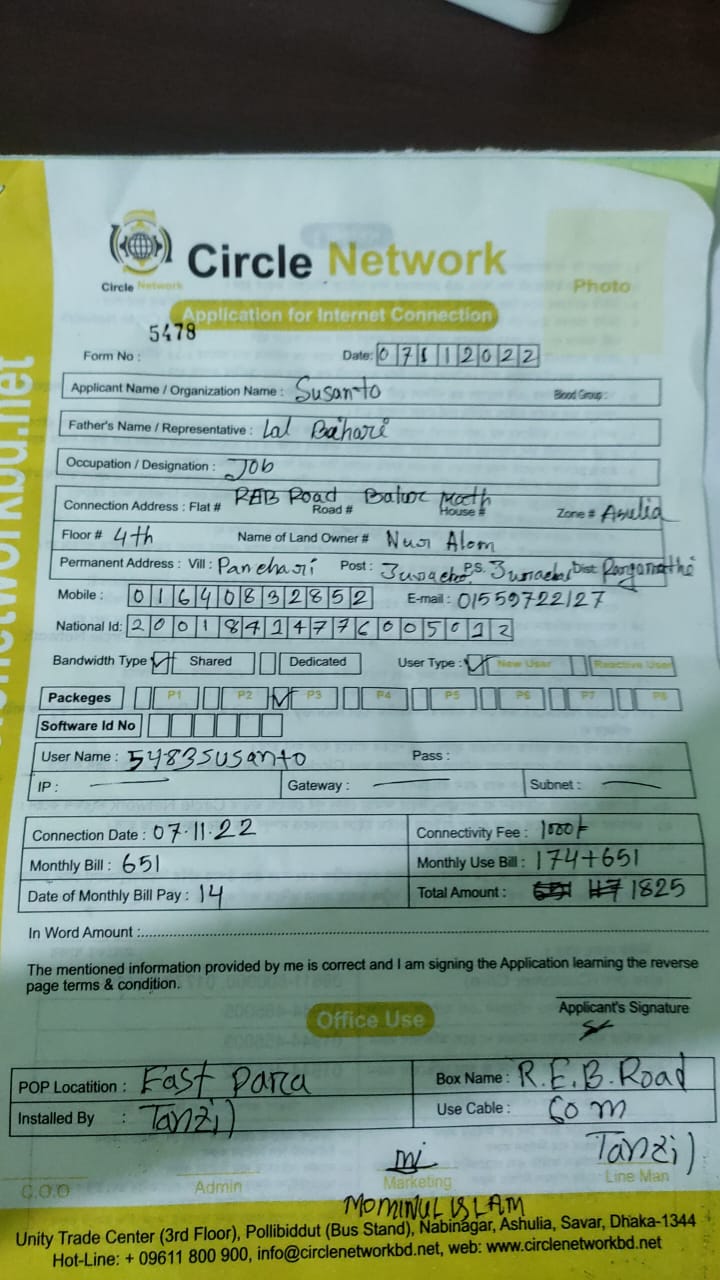 Circle Network
Circle Network
Photo
Application for Internet Connection
5478
Form No : Date: 07112022
Applicant Name / Organization Name : Susanto Blood Group :
Father's Name / Representative : Lal Bihari
Occupation / Designation : Job
Connection Address : Flat # REB Road Road # House # Zone # Asulia
Floor # 4th Name of Land Owner # Nur Alom
Permanent Address : Vill : Panchari Post : P.S. Dist:
Mobile : 01640832852 E-mail : 01559722127
National Id: 20018414776005012
Bandwidth Type Shared Dedicated User Type : New User Reactive User
Packeges P1 P2 P3 P4 P5 P6 P7 P8
Software Id No
User Name : 5483susanto Pass :
IP : Gateway : Subnet :
Connection Date : 07.11.22 Connectivity Fee : 1000/-
Monthly Bill : 651 Monthly Use Bill : 174+651
Date of Monthly Bill Pay : 14 Total Amount : 1825
In Word Amount :
The mentioned information provided by me is correct and I am signing the Application learning the reverse
page terms & condition.
Applicant's Signature
Office Use
POP Locatition : East para Box Name : R.E.B. Road
Installed By : Tanzil Use Cable : 60 m
Tanzil
C.O.O Admin Marketing Line Man
MOMINUL ISLAM
Unity Trade Center (3rd Floor), Pollibiddut (Bus Stand), Nabinagar, Ashulia, Savar, Dhaka-1344
Hot-Line: + 09611 800 900, info@circlenetworkbd.net, web: www.circlenetworkbd.net